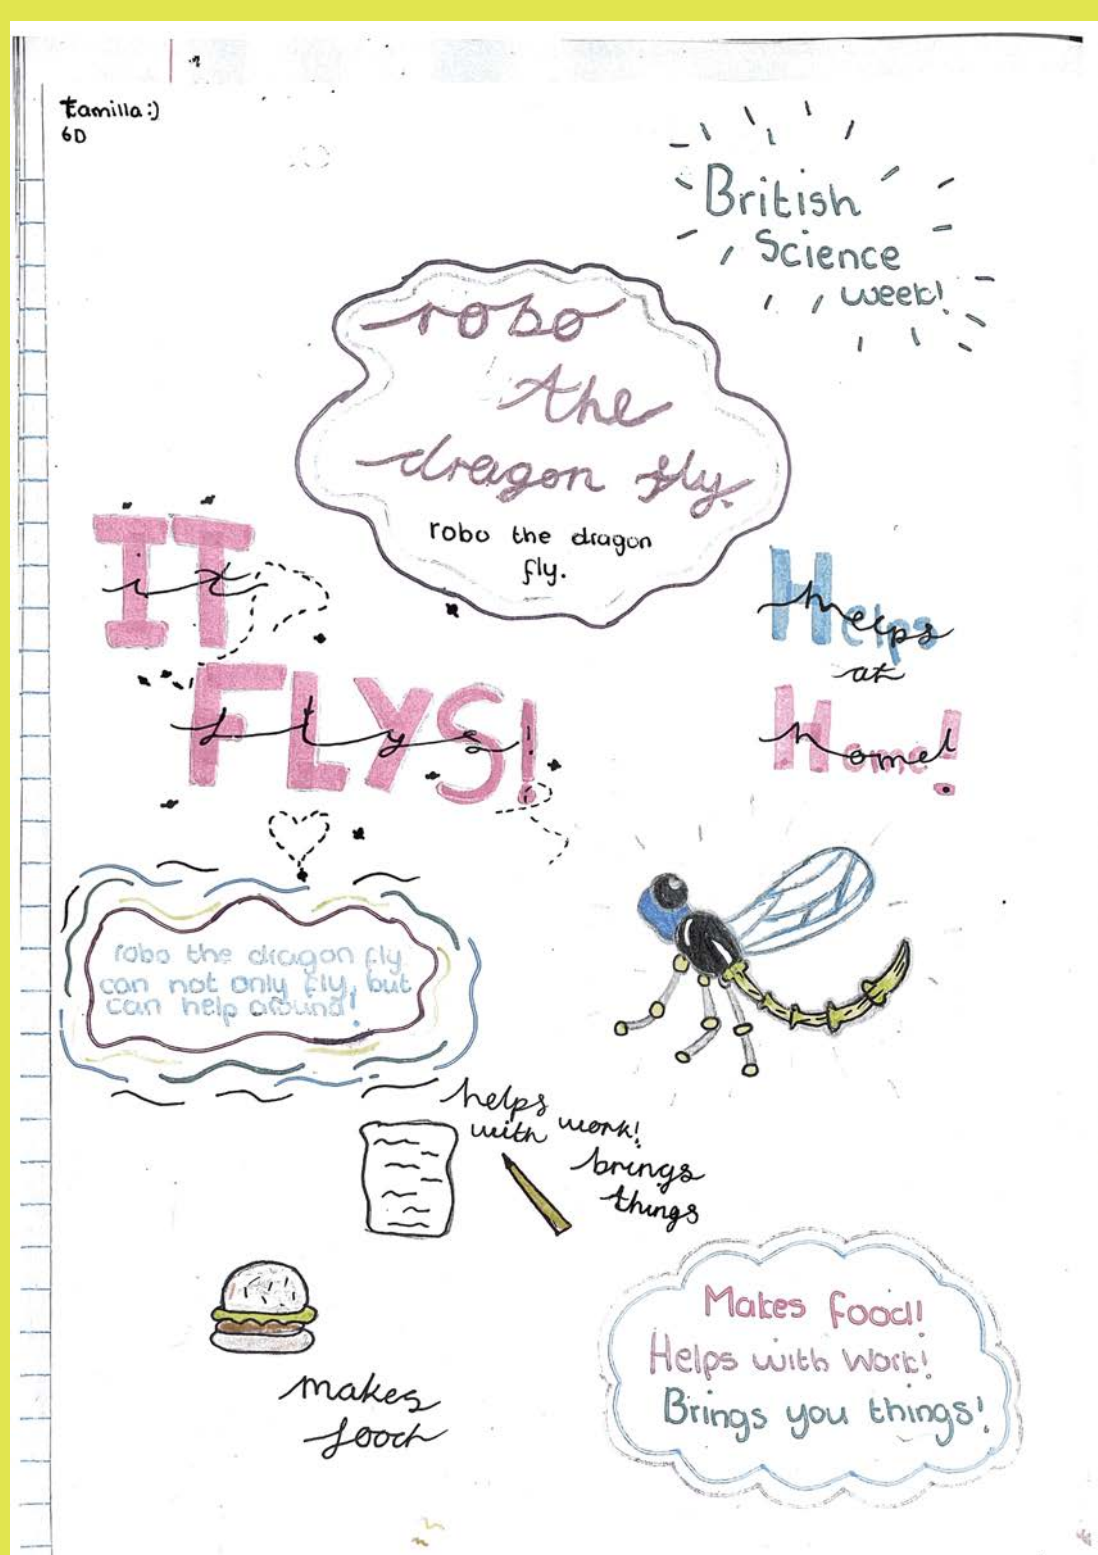 Tamilla :)
6D
British
Science
week!
robo
the
dragon fly.
robo the dragon
fly.
IT
it
FLYS!
flys!
Helps
helps
at
Home!
home!
robo the dragon fly
can not only fly, but
can help around!
helps
with work!
brings
things
makes
food
Makes food!
Helps with Work!
Brings you things!